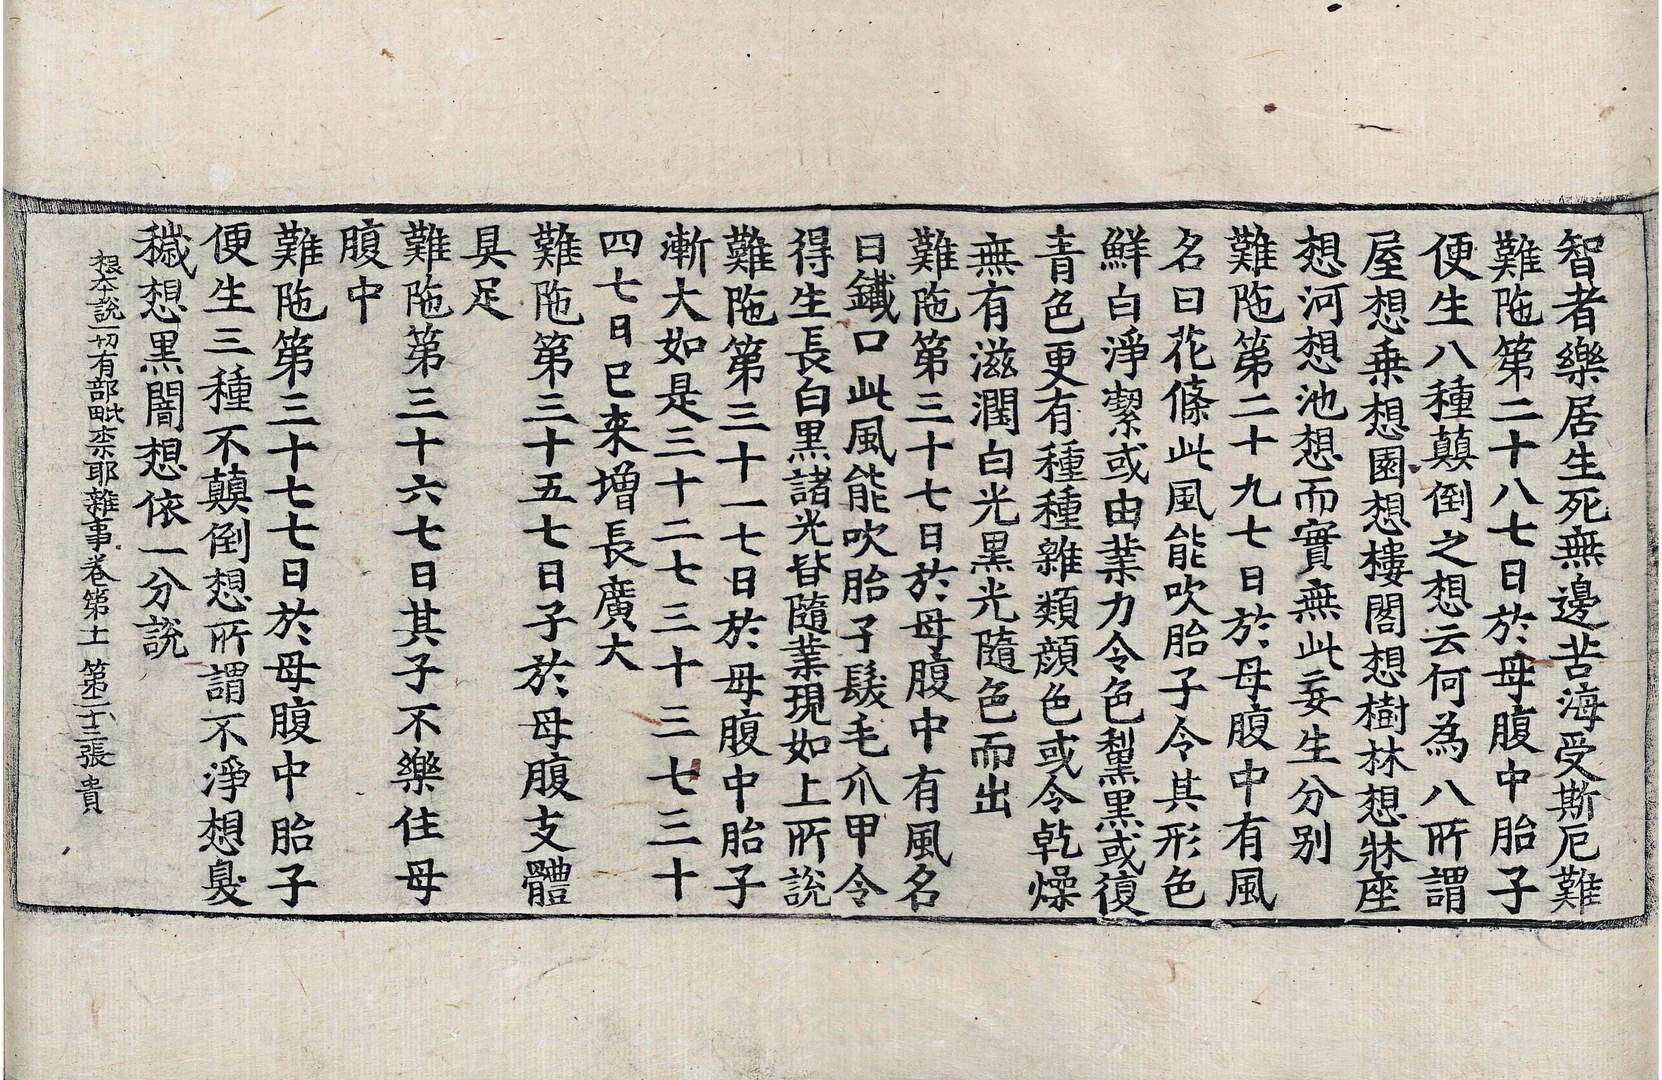 智者樂居生死無邊苦海受斯厄難
難陁第二十八七日於母腹中胎子
便生八種顛倒之想云何為八所謂
屋想乗想園想樓閣想樹林想牀座
想河想池想而實無此妄生分别
難陁第二十九七日於母腹中有風
名曰花條此風能吹胎子令其形色
鮮白淨潔或由業力令色黧黑或復
青色更有種種雜類顔色或令乾燥
無有滋潤白光黒光隨色而出
難陁第三十七日於母腹中有風名
曰鐵口此風能吹胎子髮毛爪甲令
得生長白黒諸光皆隨業現如上所說
難陁第三十一七日於母腹中胎子
漸大如是三十二七三十三七三十
四七日已来增長廣大
難陁第三十五七日子於母腹支體
具足
難陁第三十六七日其子不樂住母
腹中
難陁第三十七七日於母腹中胎子
便生三種不顛倒想所謂不淨想臭
穢想黒闇想依一分說
根本說一切有部毗柰耶雜事卷第十一 第二十三張 貴